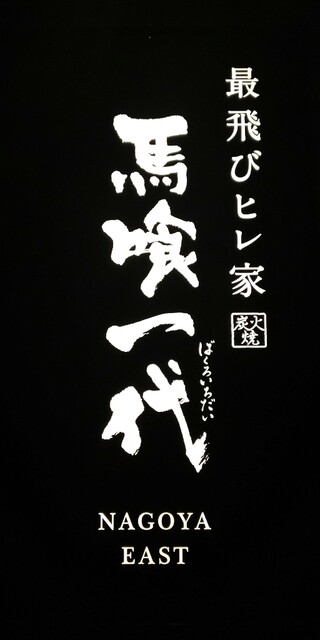 最飛びヒレ家
炭火焼
馬喰一代
ばくろいちだい
NAGOYA
EAST